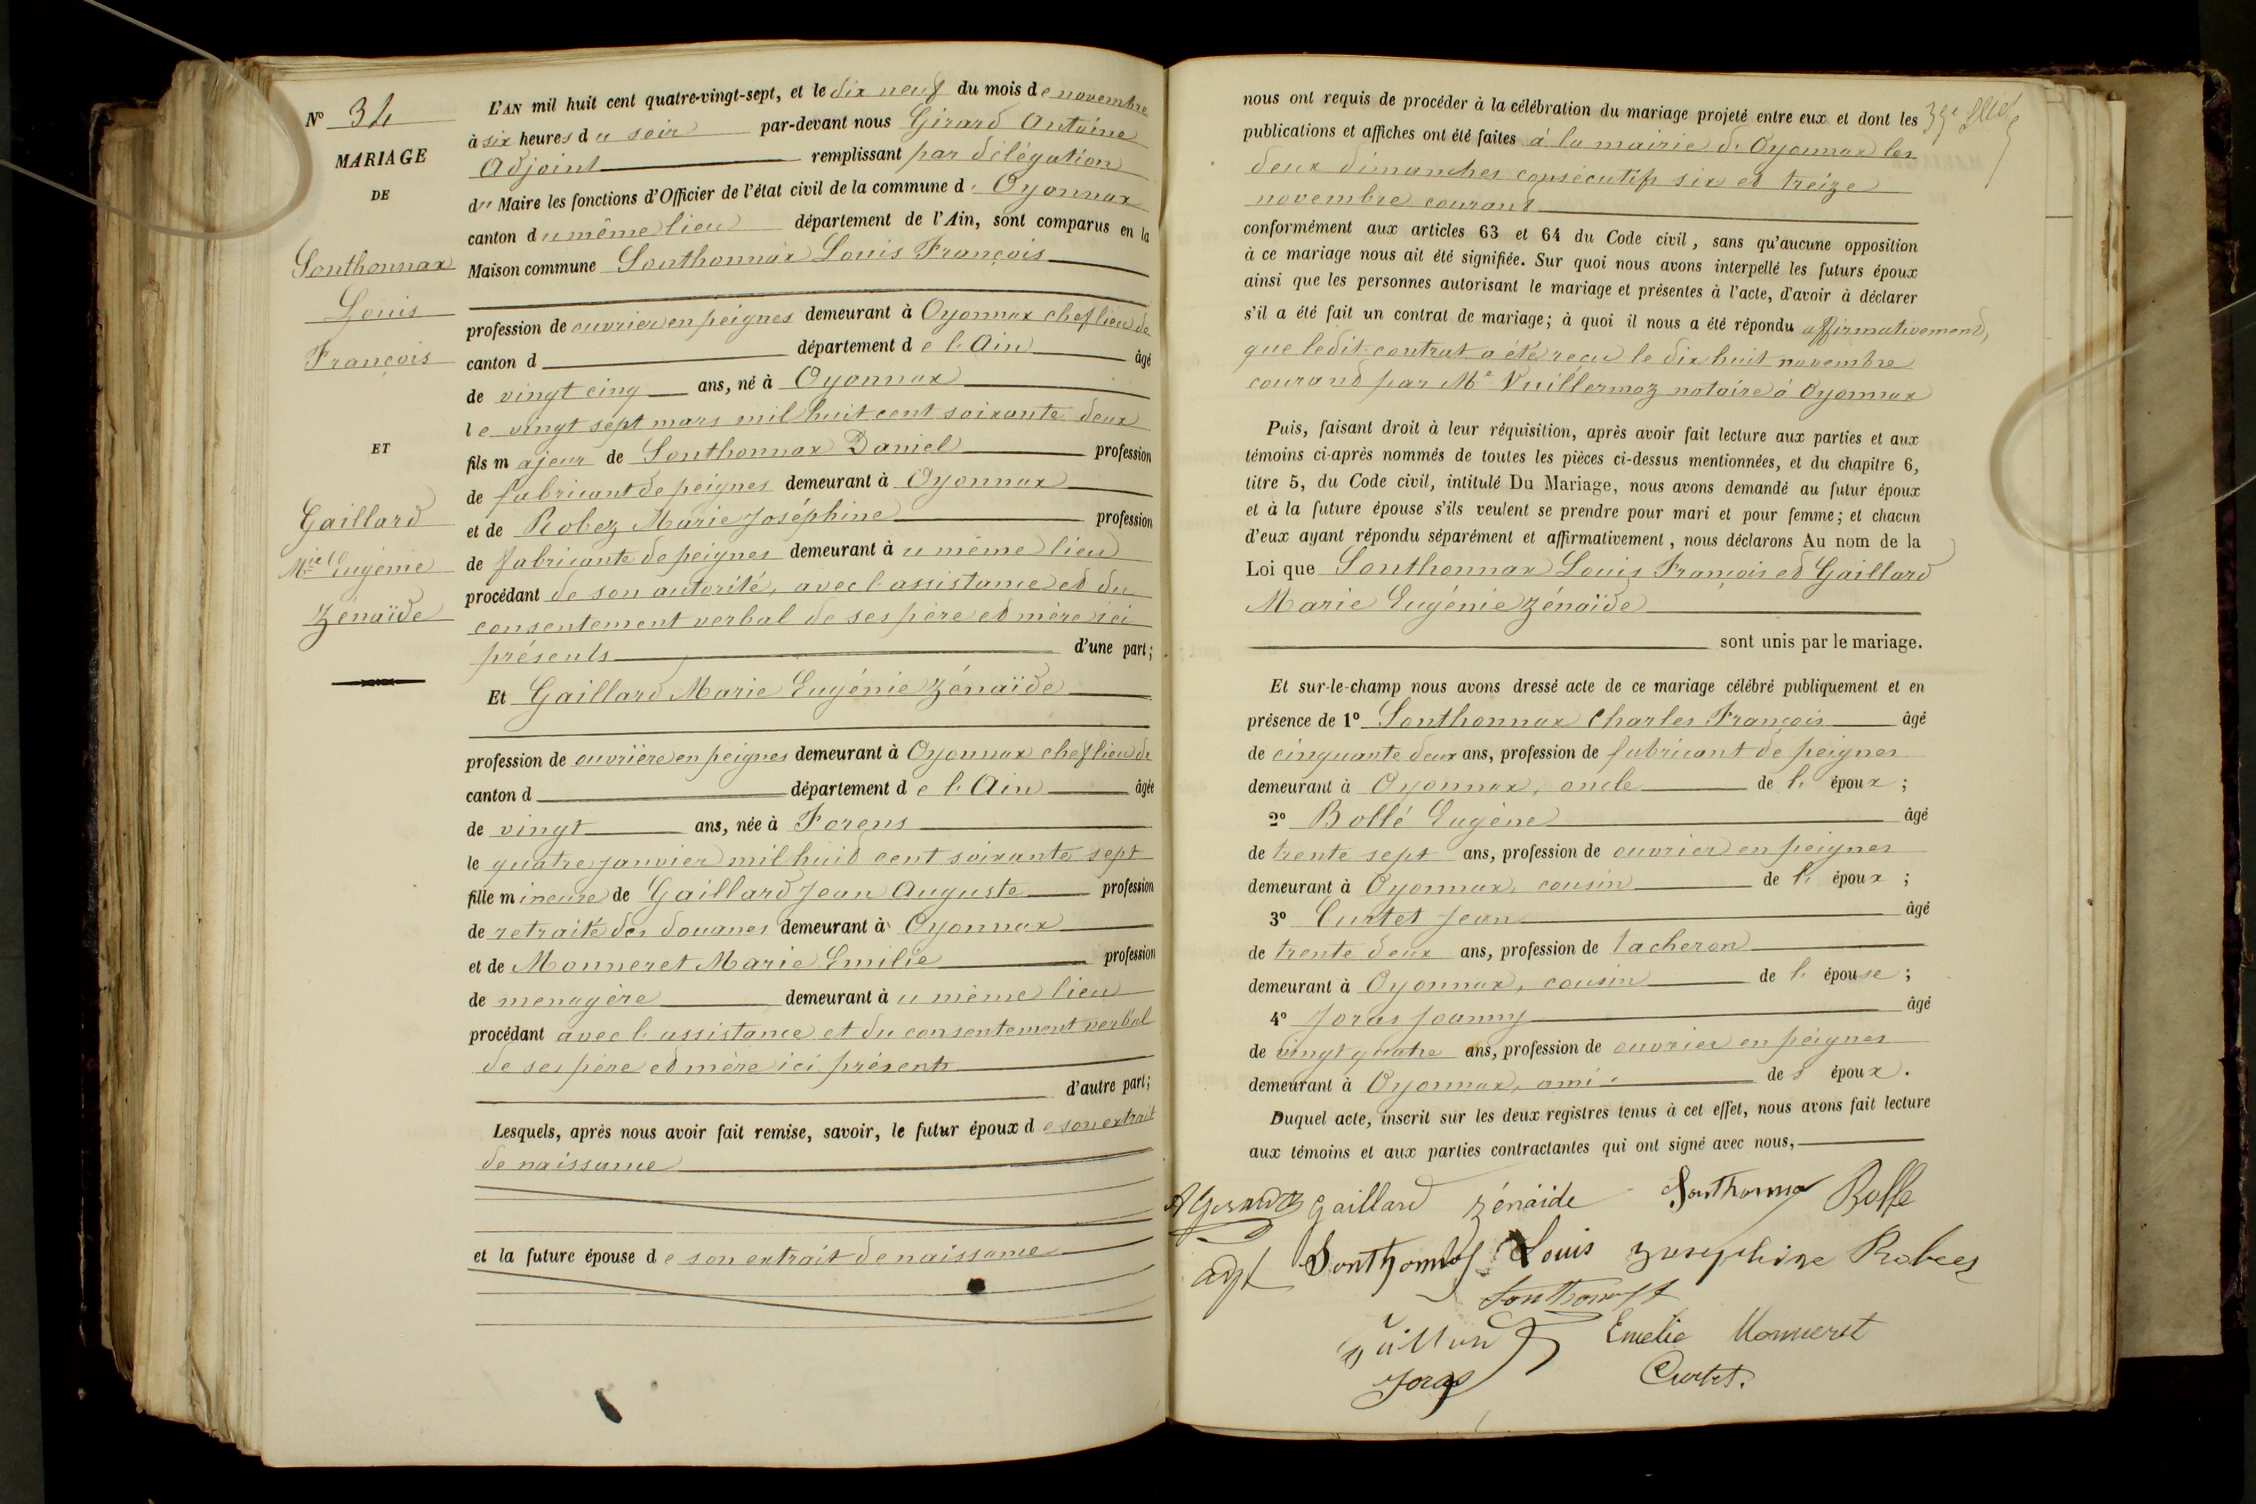 N° 34
MARIAGE
DE
Sonthonnax
Louis
François
ET
Gaillard
Mie Eugénie
Zénaïde
L'AN mil huit cent quatre-vingt-sept, et le dix neuf du mois de novembre
à six heures du soir par-devant nous Girard Antoine
Adjoint remplissant par délégation
du Maire les fonctions d'Officier de l'état civil de la commune d' Oyonnax
canton du même lieu département de l'Ain, sont comparus en la
Maison commune Sonthonnax Louis François
profession de ouvrier en peignes demeurant à Oyonnax chef lieu de
canton d département de l'Ain âgé
de vingt cinq ans, né à Oyonnax
le vingt sept mars mil huit cent soixante deux
fils majeur de Sonthonnax Daniel profession
de fabricant de peignes demeurant à Oyonnax
et de Robez Marie Joséphine profession
de fabricante de peignes demeurant au même lieu
procédant de son autorité, avec l'assistance et du
consentement verbal de ses père et mère ici
présents d'une part;
Et Gaillard Marie Eugénie Zénaïde
profession de ouvrière en peignes demeurant à Oyonnax chef lieu de
canton d département de l'Ain âgée
de vingt ans, née à Forens
le quatre janvier mil huit cent soixante sept
fille mineure de Gaillard Jean Auguste profession
de retraité des douanes demeurant à Oyonnax
et de Monneret Marie Emilie profession
de menagère demeurant au même lieu
procédant avec l'assistance et du consentement verbal
de ses père et mère ici présents
d'autre part;
Lesquels, après nous avoir fait remise, savoir, le futur époux de son extrait
de naissance
et la future épouse de son extrait de naissance
nous ont requis de procéder à la célébration du mariage projeté entre eux et dont les
publications et affiches ont été faites à la mairie d'Oyonnax les
deux dimanches consécutifs six et treize
novembre courant
conformément aux articles 63 et 64 du Code civil, sans qu'aucune opposition
à ce mariage nous ait été signifiée. Sur quoi nous avons interpellé les futurs époux
ainsi que les personnes autorisant le mariage et présentes à l'acte, d'avoir à déclarer
s'il a été fait un contrat de mariage; à quoi il nous a été répondu affirmativement,
que ledit contrat a été reçu le dix huit novembre
courant par Me Vuillermoz notaire à Oyonnax
Puis, faisant droit à leur réquisition, après avoir fait lecture aux parties et aux
témoins ci-après nommés de toutes les pièces ci-dessus mentionnées, et du chapitre 6,
titre 5, du Code civil, intitulé Du Mariage, nous avons demandé au futur époux
et à la future épouse s'ils veulent se prendre pour mari et pour femme; et chacun
d'eux ayant répondu séparément et affirmativement, nous déclarons Au nom de la
Loi que Sonthonnax Louis François et Gaillard
Marie Eugénie Zénaïde
sont unis par le mariage.
Et sur-le-champ nous avons dressé acte de ce mariage célébré publiquement et en
présence de 1° Sonthonnax Charles François âgé
de cinquante deux ans, profession de fabricant de peignes
demeurant à Oyonnax, oncle de l' époux ;
2° Bollé Eugène âgé
de trente sept ans, profession de ouvrier en peignes
demeurant à Oyonnax, cousin de l' époux ;
3° Curtet Jean âgé
de trente deux ans, profession de tacheron
demeurant à Oyonnax, cousin de l' épouse ;
4° Joras Joanny âgé
de vingt quatre ans, profession de ouvrier en peignes
demeurant à Oyonnax, ami des époux.
Duquel acte, inscrit sur les deux registres tenus à cet effet, nous avons fait lecture
aux témoins et aux parties contractantes qui ont signé avec nous,
A Girard Gaillard Zénaïde Sonthonnax Bolle
adjt Sonthonnax Louis Josephine Robez
Sonthonnax
Gaillard Emelie Monneret
Joras Curtet.